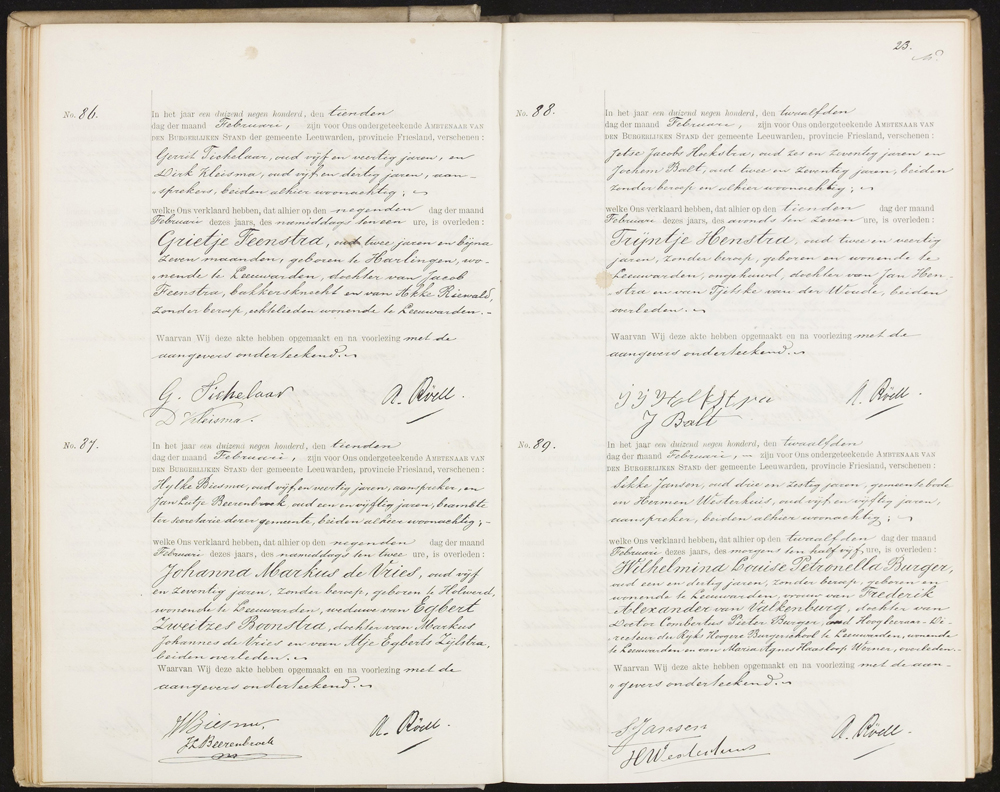 No. 86.
In het jaar een duizend negen honderd, den tienden
dag der maand Februari, zijn voor Ons ondergeteekende AMBTENAAR VAN
DEN BURGERLIJKEN STAND der gemeente Leeuwarden, provincie Friesland, verschenen:
Gerrit Tichelaar, oud vijf en veertig jaren, en
Dirk Kleisma, oud vijf en dertig jaren, aan-
sprekers, beiden alhier woonachtig;
welke Ons verklaard hebben, dat alhier op den negenden dag der maand
Februari dezes jaars, des namiddags ten een ure, is overleden:
Grietje Feenstra, oud twee jaren en bijna
zeven maanden, geboren te Harlingen, wo-
nende te Leeuwarden, dochter van Jacob
Feenstra, bakkersknecht en van Akke Riewald,
zonder beroep, echtelieden wonende te Leeuwarden.-
Waarvan Wij deze akte hebben opgemaakt en na voorlezing met de
aangevers onderteekend.
G. Tichelaar A. Röell.
D Kleisma.
No. 87.
In het jaar een duizend negen honderd, den tienden
dag der maand Februari, zijn voor Ons ondergeteekende AMBTENAAR VAN
DEN BURGERLIJKEN STAND der gemeente Leeuwarden, provincie Friesland, verschenen:
Hylke Biesma, oud vijf en veertig jaren, aanspreker, en
Jan Luitje Beerenbrock, oud een en vijftig jaren, beambte
ter secretarie dezer gemeente, beiden alhier woonachtig;-
welke Ons verklaard hebben, dat alhier op den negenden dag der maand
Februari dezes jaars, des namiddags ten twee ure, is overleden:
Johanna Markus de Vries, oud vijf
en zeventig jaren, zonder beroep, geboren te Holwerd,
wonende te Leeuwarden, weduwe van Egbert
Zweitzes Boonstra, dochter van Markus
Johannes de Vries en van Atje Egberts Zijlstra,
beiden overleden.
Waarvan Wij deze akte hebben opgemaakt en na voorlezing met de
aangevers onderteekend.
H Biesma. A. Röell.
JLBeerenbrock
23.
No. 88.
In het jaar een duizend negen honderd, den twaalfden
dag der maand Februari, zijn voor Ons ondergeteekende AMBTENAAR VAN
DEN BURGERLIJKEN STAND der gemeente Leeuwarden, provincie Friesland, verschenen:
Jetse Jacobs Hoekstra, oud zes en zeventig jaren en
Jochem Balt, oud twee en zeventig jaren, beiden
zonder beroep en alhier woonachtig;
welke Ons verklaard hebben, dat alhier op den tienden dag der maand
Februari dezes jaars, des avonds ten zeven ure, is overleden:
Trijntje Henstra, oud twee en veertig
jaren, zonder beroep, geboren en wonende te
Leeuwarden, ongehuwd, dochter van Jan Hen-
stra en van Tjetske van der Woude, beiden
overleden.
Waarvan Wij deze akte hebben opgemaakt en na voorlezing met de
aangevers onderteekend.
A. Röell.
J Balt
No. 89.
In het jaar een duizend negen honderd, den twaalfden
dag der maand Februari, zijn voor Ons ondergeteekende AMBTENAAR VAN
DEN BURGERLIJKEN STAND der gemeente Leeuwarden, provincie Friesland, verschenen:
Sikke Jansen, oud drie en zestig jaren, gemeentebode
en Hermen Westerhuis, oud vijf en vijftig jaren,
aanspreker, beiden alhier woonachtig;
welke Ons verklaard hebben, dat alhier op den twaalfden dag der maand
Februari dezes jaars, des morgens ten half vijf, ure, is overleden:
Wilhelmina Louise Petronella Burger,
oud een en dertig jaren, zonder beroep, geboren en
wonende te Leeuwarden, vrouw van Frederik
Alexander van Valkenburg, dochter van
Doctor Combertus Pieter Burger, oud Hoogleeraar-Di-
recteur der Rijks Hoogere Burgerschool te Leeuwarden, wonende
te Leeuwarden en van Maria Agnes Haasloop Werner, overleden.
Waarvan Wij deze akte hebben opgemaakt en na voorlezing met de aan-
gevers onderteekend.
S Jansen A. Röell.
HWesterhuis